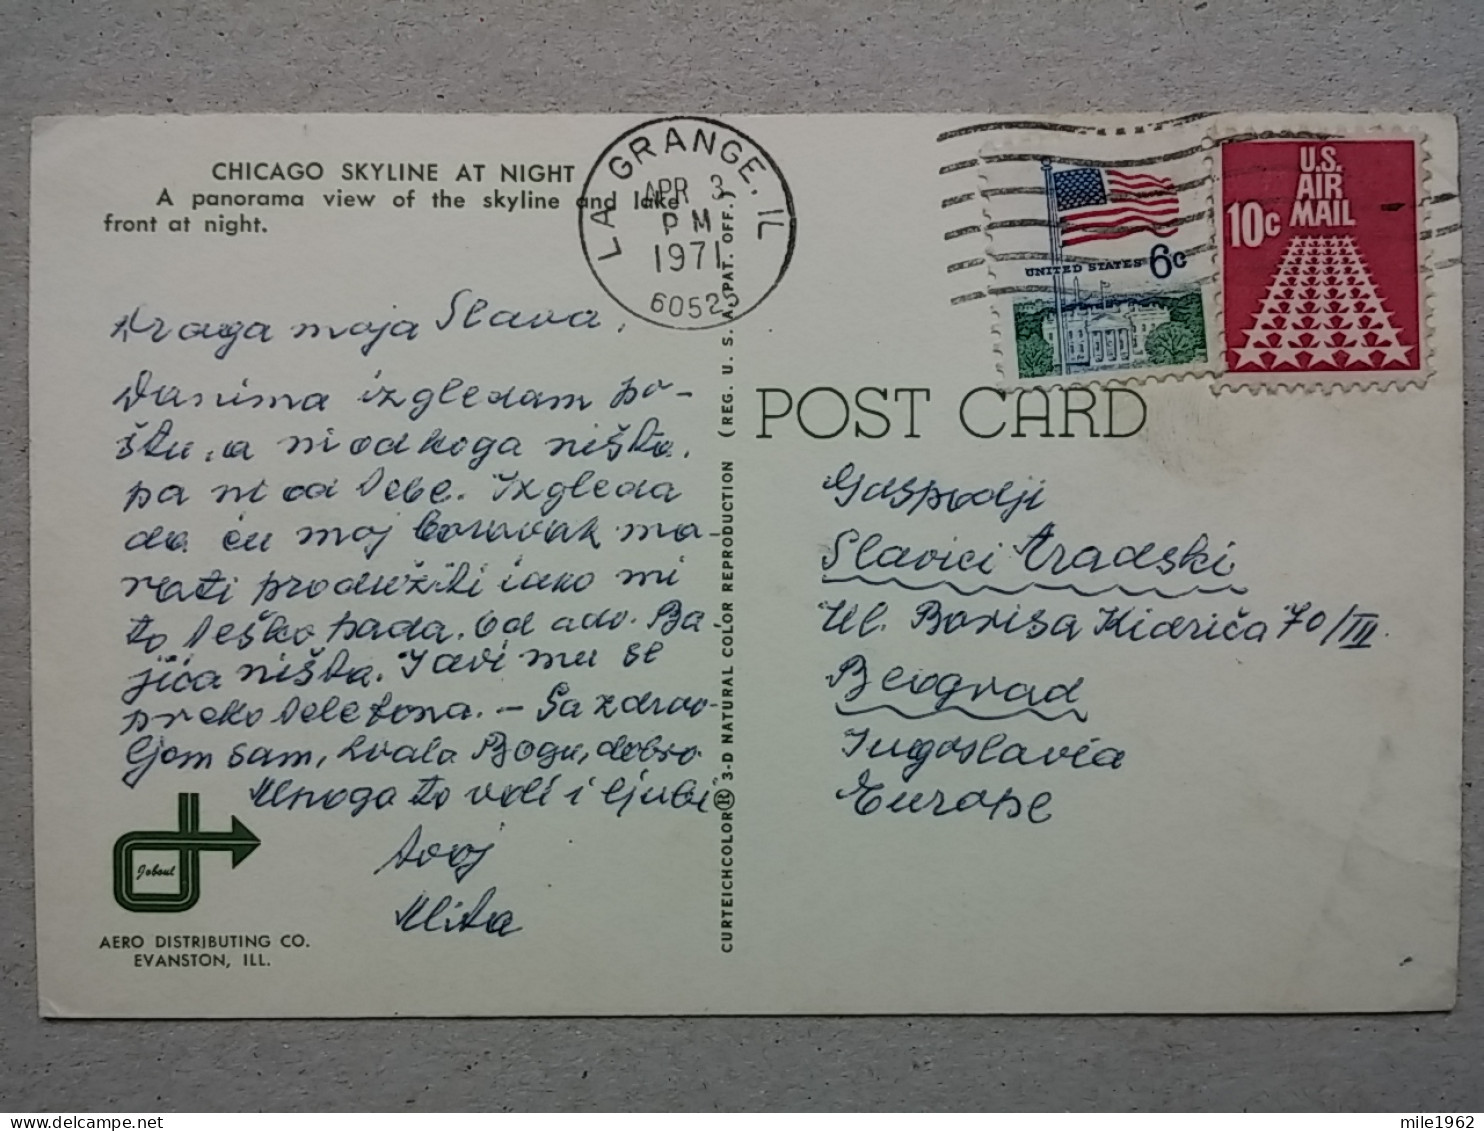 CHICAGO SKYLINE AT NIGHT
A panorama view of the skyline and lake
front at night.
LA GRANGE, IL
APR 3
PM
1971
60525
UNITED STATES 6c
U.S.
AIR
MAIL
10c
Draga moja Slava,
Danima izgledam po-
štu, a ni od koga ništa,
pa ni od Tebe. Izgleda
da ću moj boravak mo-
rati produžiti iako mi
to teško pada. Od adv. Ba-
jića ništa. Javi mu se
preko telefona. – Sa zdrav-
ljem sam, hvala Bogu, dobro
Mnogo te voli i ljubi
tvoj
Mita
Joboul
AERO DISTRIBUTING CO.
EVANSTON, ILL.
CURTEICHCOLOR® 3-D NATURAL COLOR REPRODUCTION (REG. U. S. A. PAT. OFF.)
POST CARD
Gospodji
Slavici Gradski
Ul. Borisa Kidriča 70/III
Beograd
Jugoslavia
Europe
mile1962